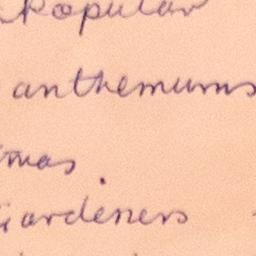 popular
anthemums
mas.
Gardeners